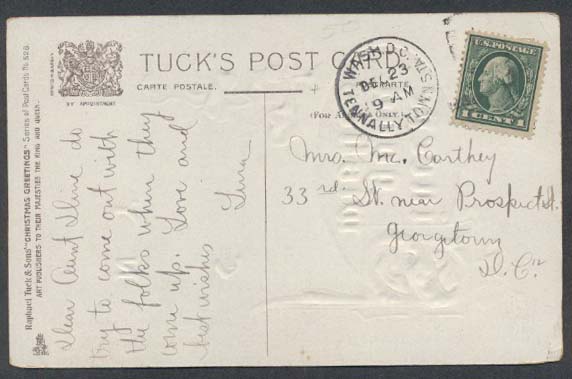 TUCK'S POST CARD
CARTE POSTALE.
BY APPOINTMENT
Raphael Tuck & Sons' "CHRISTMAS GREETINGS" Series of Post Cards No. 528.
ART PUBLISHERS TO THEIR MAJESTIES THE KING AND QUEEN.
Dear Aunt
try to come out with
the folks when they
come up. Love and
best wishes
WASH. D.C.
DEC 23
9 AM
TENNALLYTOWN STA.
U.S. POSTAGE
1 CENT 1
Mrs. Mc. Carthey
33rd. St. near Prospect St.
Georgetown
D.C.